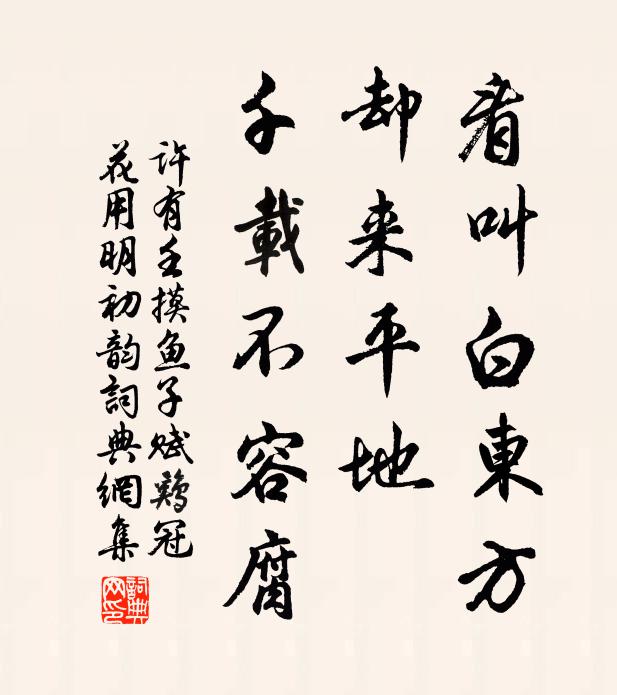 看叫白東方
却来平地
千載不容腐
許有壬摸魚子賦鷄冠
花用明初韵詞典網集
詞典网印